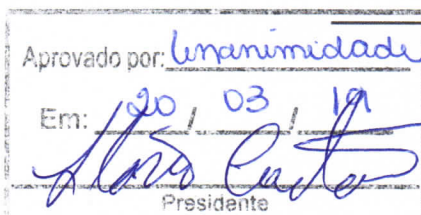 Aprovado por: Unanimidade
Em: 20 / 03 / 19
Presidente